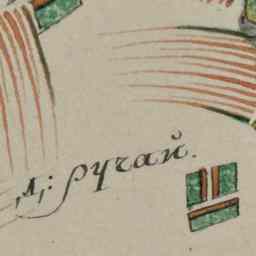 Д: ручай.